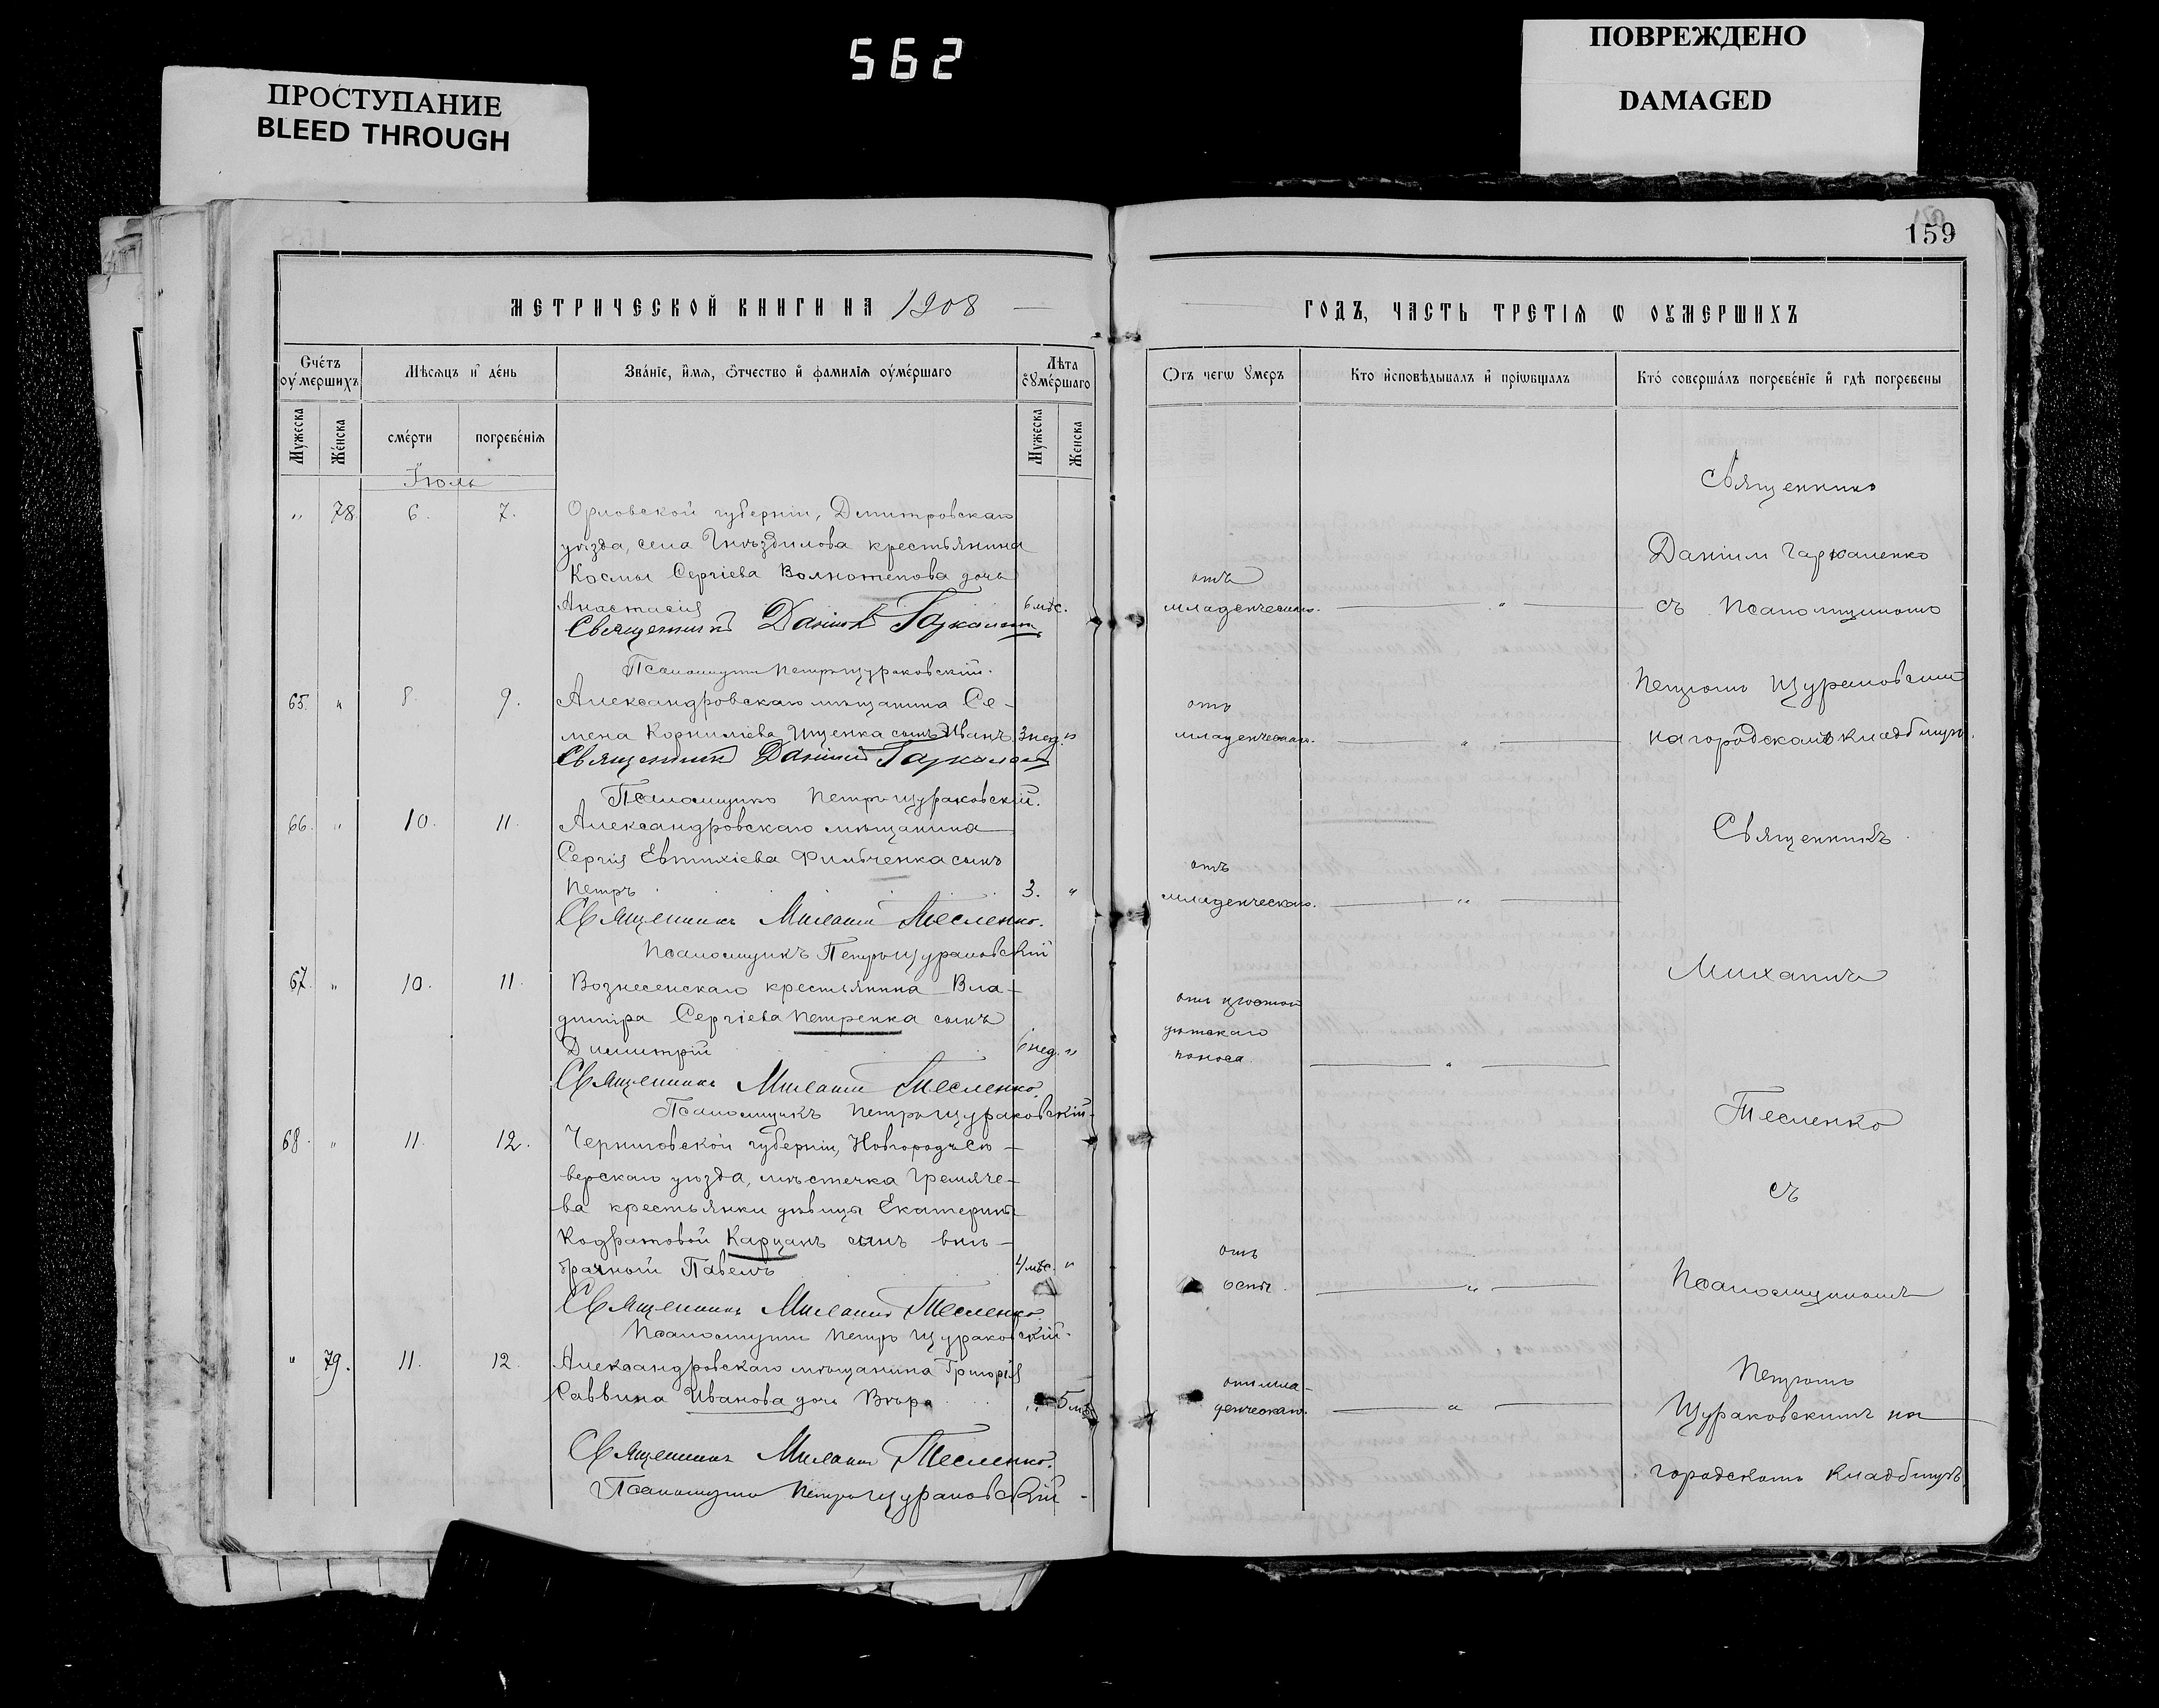 562
ПРОСТУПАНИЕ
BLEED THROUGH
ПОВРЕЖДЕНО
DAMAGED
159
МЕТРИЧЕСКОЙ КНИГИ НА 1908
ГОДЪ, ЧАСТЬ ТРЕТІѦ Ѡ ОУМЕРШИХЪ
Счетъ оумершихъ
Мѣсяцъ и день
Званіе, имя, отчество и фамилія оумершаго
Лѣта оумершаго
Мужеска
Женска
смерти
погребенія
Мужеска
Женска
Отъ чегѡ умеръ
Кто исповѣдывалъ и пріѡбщалъ
Кто совершалъ погребеніе и гдѣ погребены
Іюль
" 78. 6. 7. Орловской губерніи, Димитровскаго
уѣзда, села Гнѣздилова крестьянина
Космы Сергіева дочь
Анастасія 6 мѣс.
Священникъ Даніилъ Гаркаленко
Псаломщикъ Петръ Щураковскій.
65. " 8. 9. Александровскаго мѣщанина Се-
мена Корниліева Ищенка сынъ Иванъ. 3 нед. "
Священникъ Даніилъ Гаркаленко
Псаломщикъ Петръ Щураковскій.
66. " 10. 11. Александровскаго мѣщанина
Сергія Евтихіева сынъ
Петръ 3. "
Священникъ Михаилъ Тесленко.
Псаломщикъ Петръ Щураковскій
67. " 10. 11. Вознесенскаго крестьянина Вла-
диміра Сергіева Петренка сынъ
Димитрій 6 нед. "
Священникъ Михаилъ Тесленко.
Псаломщикъ Петръ Щураковскій.
68. " 11. 12. Черниговской губерніи, Новгородъ Сѣ-
верскаго уѣзда, мѣстечка Гремяче-
ва крестьянки дѣвицы Екатерины
Кодратовой Карцанъ сынъ внѣ-
брачный Павелъ 4 мѣс. "
Священникъ Михаилъ Тесленко.
Псаломщикъ Петръ Щураковскій.
" 79. 11. 12. Александровскаго мѣщанина Григорія
Саввина Иванова дочь Вѣра " 5 мѣс
Священникъ Михаилъ Тесленко.
Псаломщикъ Петръ Щураковскій
отъ
младенческаго. "
отъ
младенческаго. "
отъ
младенческаго. "
дѣтскаго
поноса. "
отъ
оспы. "
отъ мла-
денческаго. "
Священникъ
Даніилъ Гаркаленко
съ Псаломщикомъ
Петромъ Щураковскимъ
на городскомъ кладбищѣ.
Священникъ
Михаилъ
Тесленко
съ
Псаломщикомъ
Петромъ
Щураковскимъ на
городскомъ кладбищѣ.